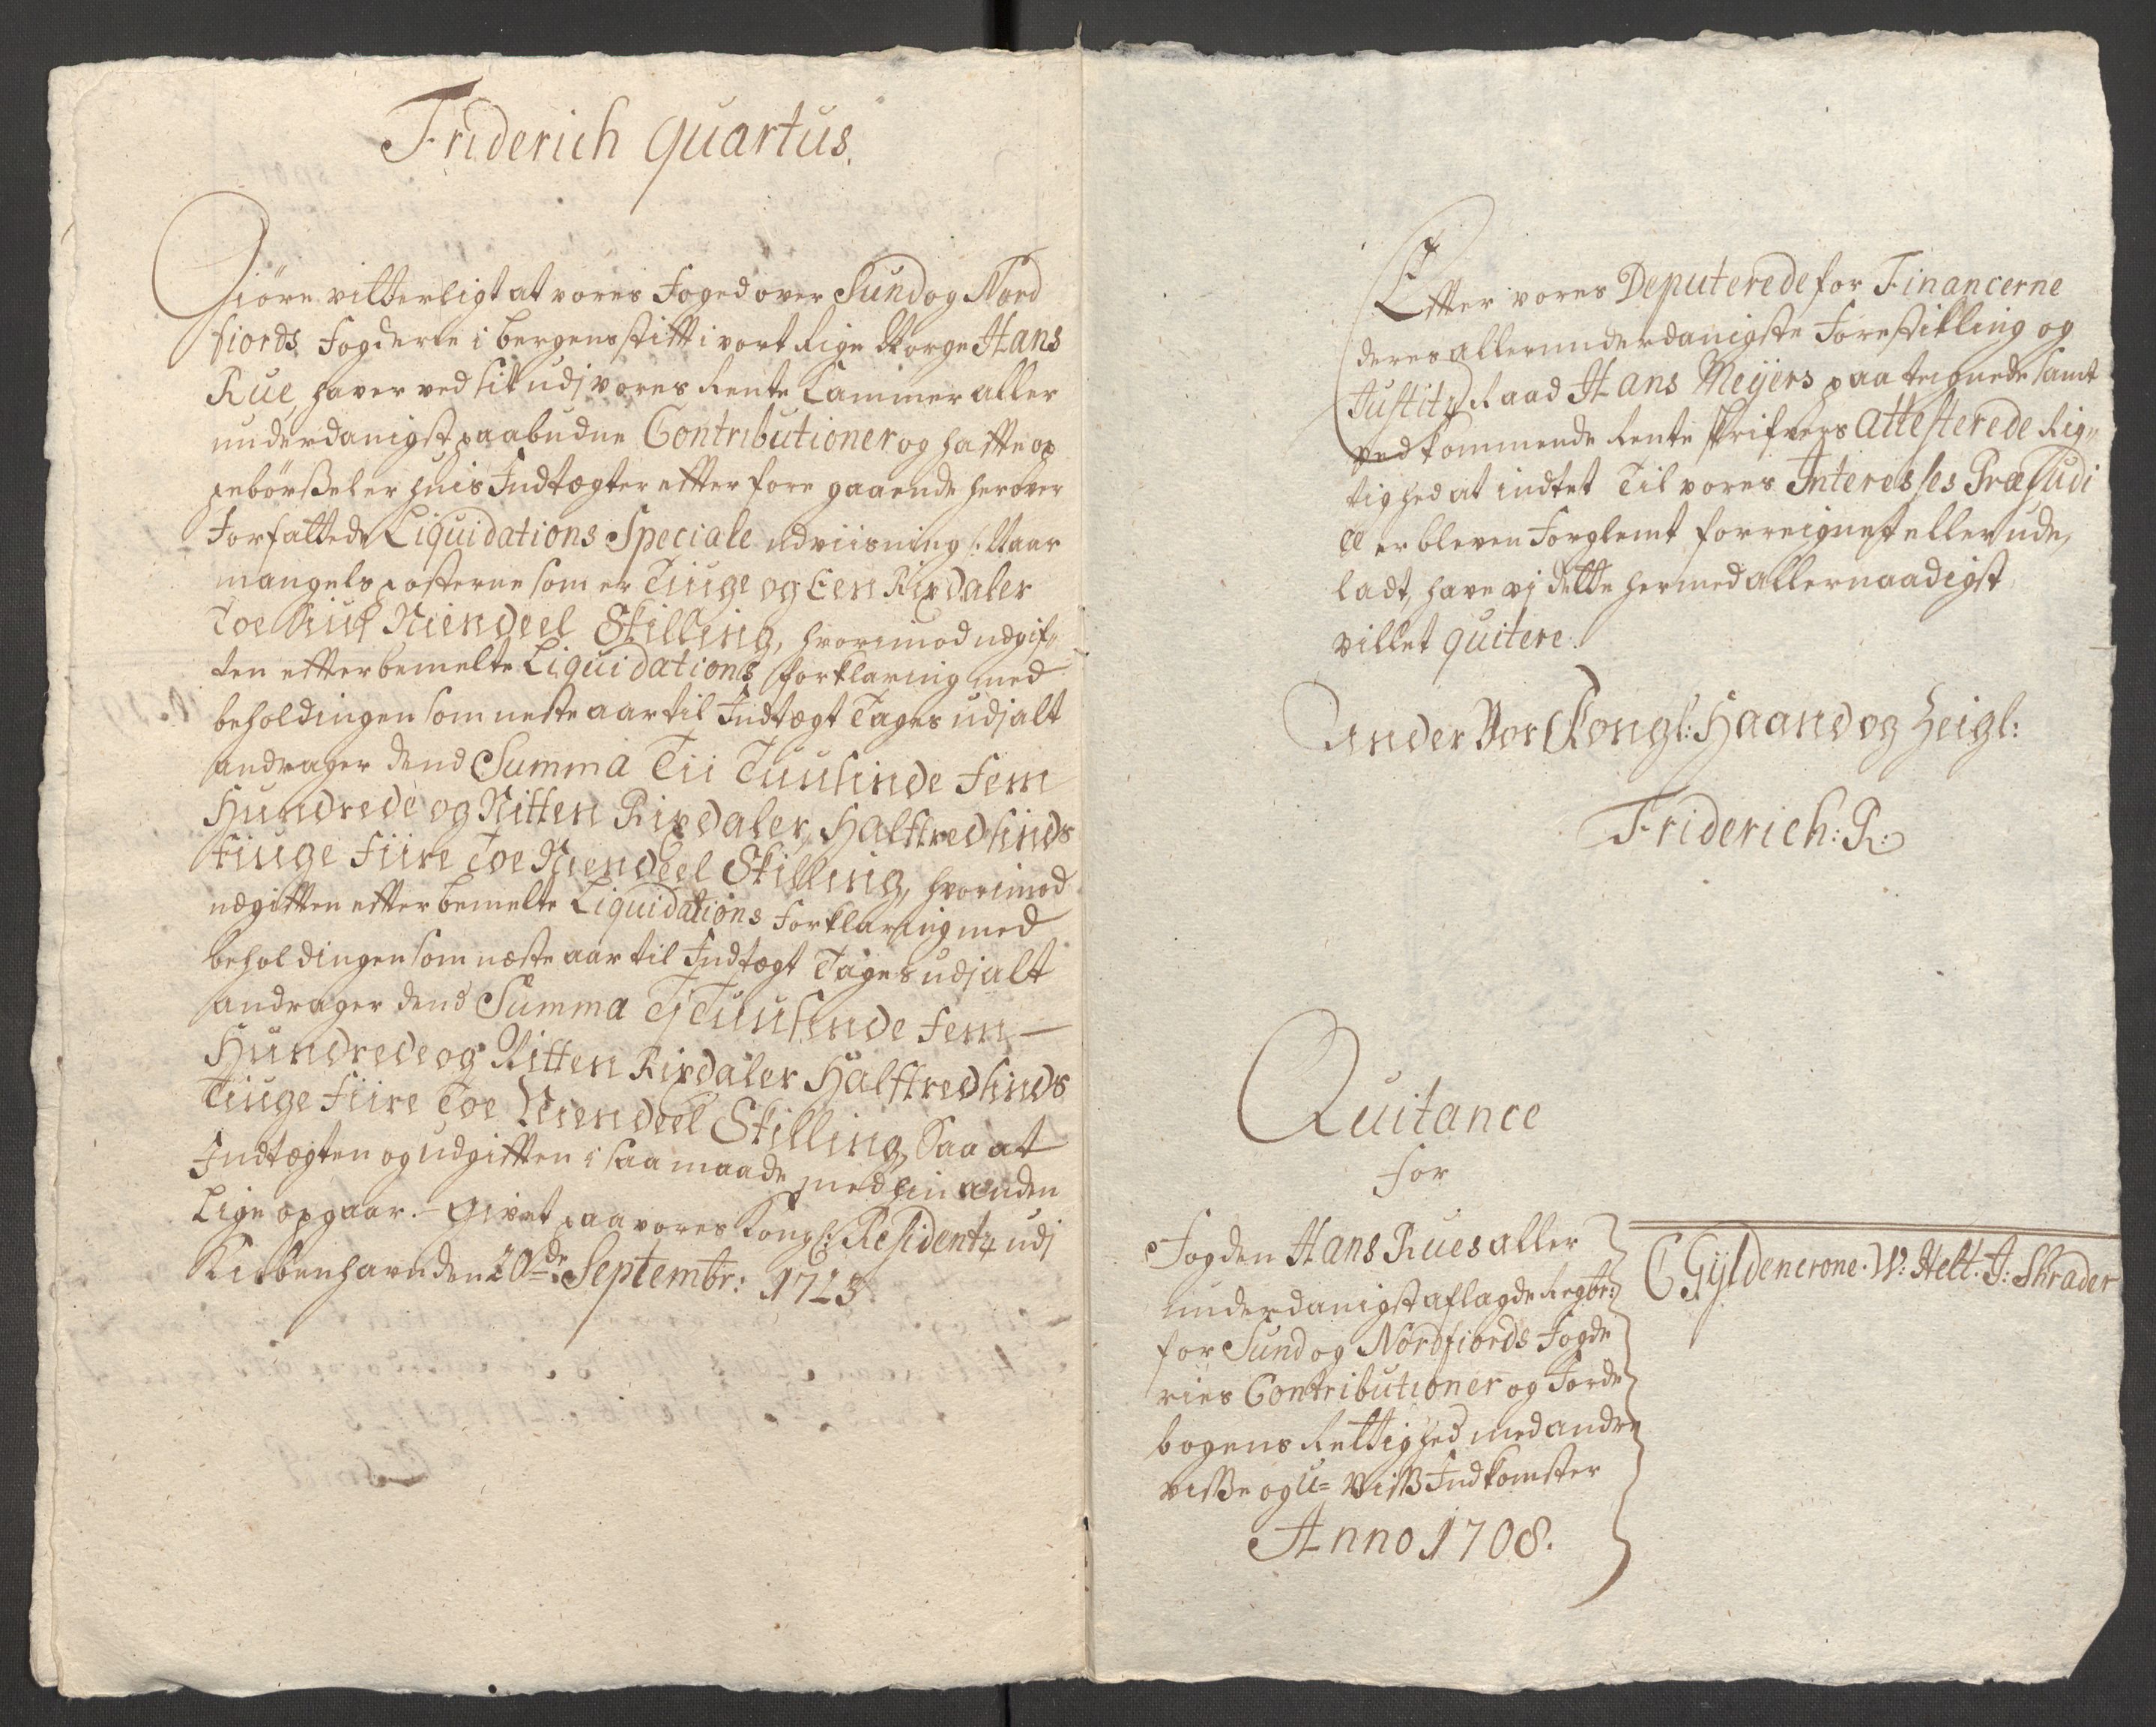 Friderich Quartus.
Giöre vitterligt at vores Foged over Sund og Nord
fiords Fogderie i bergens stift i vort Rige Norge Hans
Rue, haver ved sit udj vores Rente Cammer aller
underdanigst paabudne Contributioner og hafte op
pebörßeler huis Indtægter effter fore gaaende herover
Forfattede Liquidations Speciale udviisning
mangels posterne som er Tiuge og Een Rixdaler
Toe Niendeel Skilling, hvorimod udgif„
ten efter bemelte Liquidations forklaring med
beholdingen som neste aar til Indtægt Tages udj alt
andrager dend Summa Tii Tuusinde Fem
Hundrede og Nitten Rixdaler, Halftredsinds
tiuge Fiire Toe Niendeel Skilling, hvorimod
udgiften efter bemelte Liquidations Forklaring med
beholdingen som næste aar til Indtægt Tages udj alt
andrager dend Summa Tj Tuusende Fem
Hundrede og Nitten Rixdaler Halftredsinds
Tiuge Fiire Toe Niendeel Skilling, Saa at
Indtægten og udgifften i saa maade med hin anden
Lige opgaar. - Givet paa vores Kongl: Residentz udj
Kiöbenhavn den 20de Septembr: 1713
Efter vores Deputerede for Financerne
deres allerunderdanigste Forestilling og
Justitz Raad Hans Meyers paa tegnede samt
vedkommende Rente skrifvers attesterede Rig„
tighed at indtet Til vores Interesses Præjudi
ce er bleven Forglemt forreignet eller ude,
ladt, have vj dette hermed allernaadigst
villet quitere.
Under Vor Kongl: Haand og Zeigl:
Friderich: R:
Quitance
for
Fogden Hans Rues aller
underdanigst aflagde Regbr:
for Sund og Nordfiords Fogde
ries Contributioner og Jorde
bogens Rettighed med andre
visse og U= viß Indkomster
Anno 1708.
C Gyldencrone. W: Helt. J: Shrader